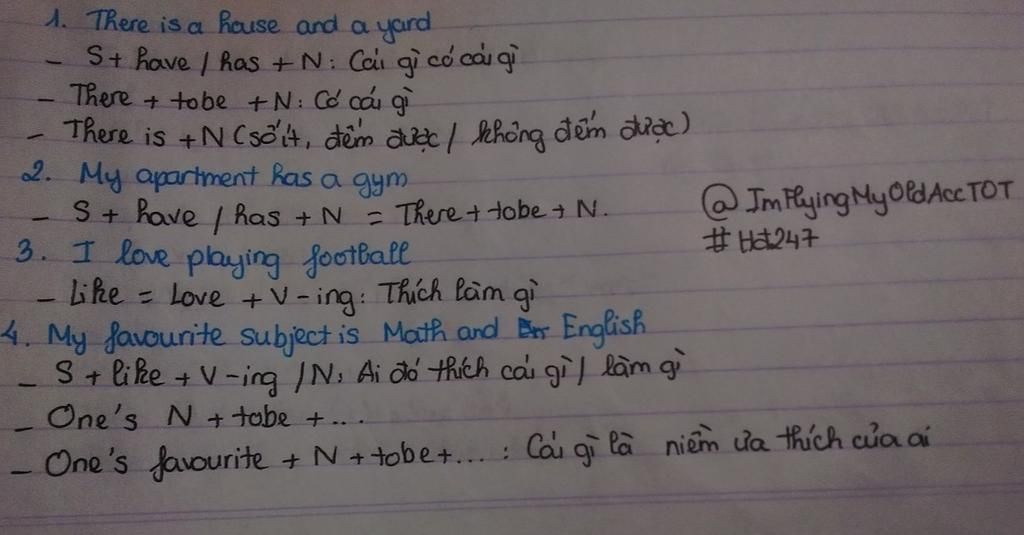 1. There is a house and a yard
- S + have / has + N : Cái gì có cái gì
- There + tobe + N : Có cái gì
- There is + N (số ít, đếm được / không đếm được)
2. My apartment has a gym
- S + have / has + N = There + tobe + N.
@ImFlyingMyOldAccTOT
#Hot247
3. I love playing football
- Like = Love + V-ing : Thích làm gì
4. My favourite subject is Math and English
- S + like + V-ing / N : Ai đó thích cái gì / làm gì
- One's N + tobe + ...
- One's favourite + N + tobe + ... : Cái gì là niềm ưa thích của ai